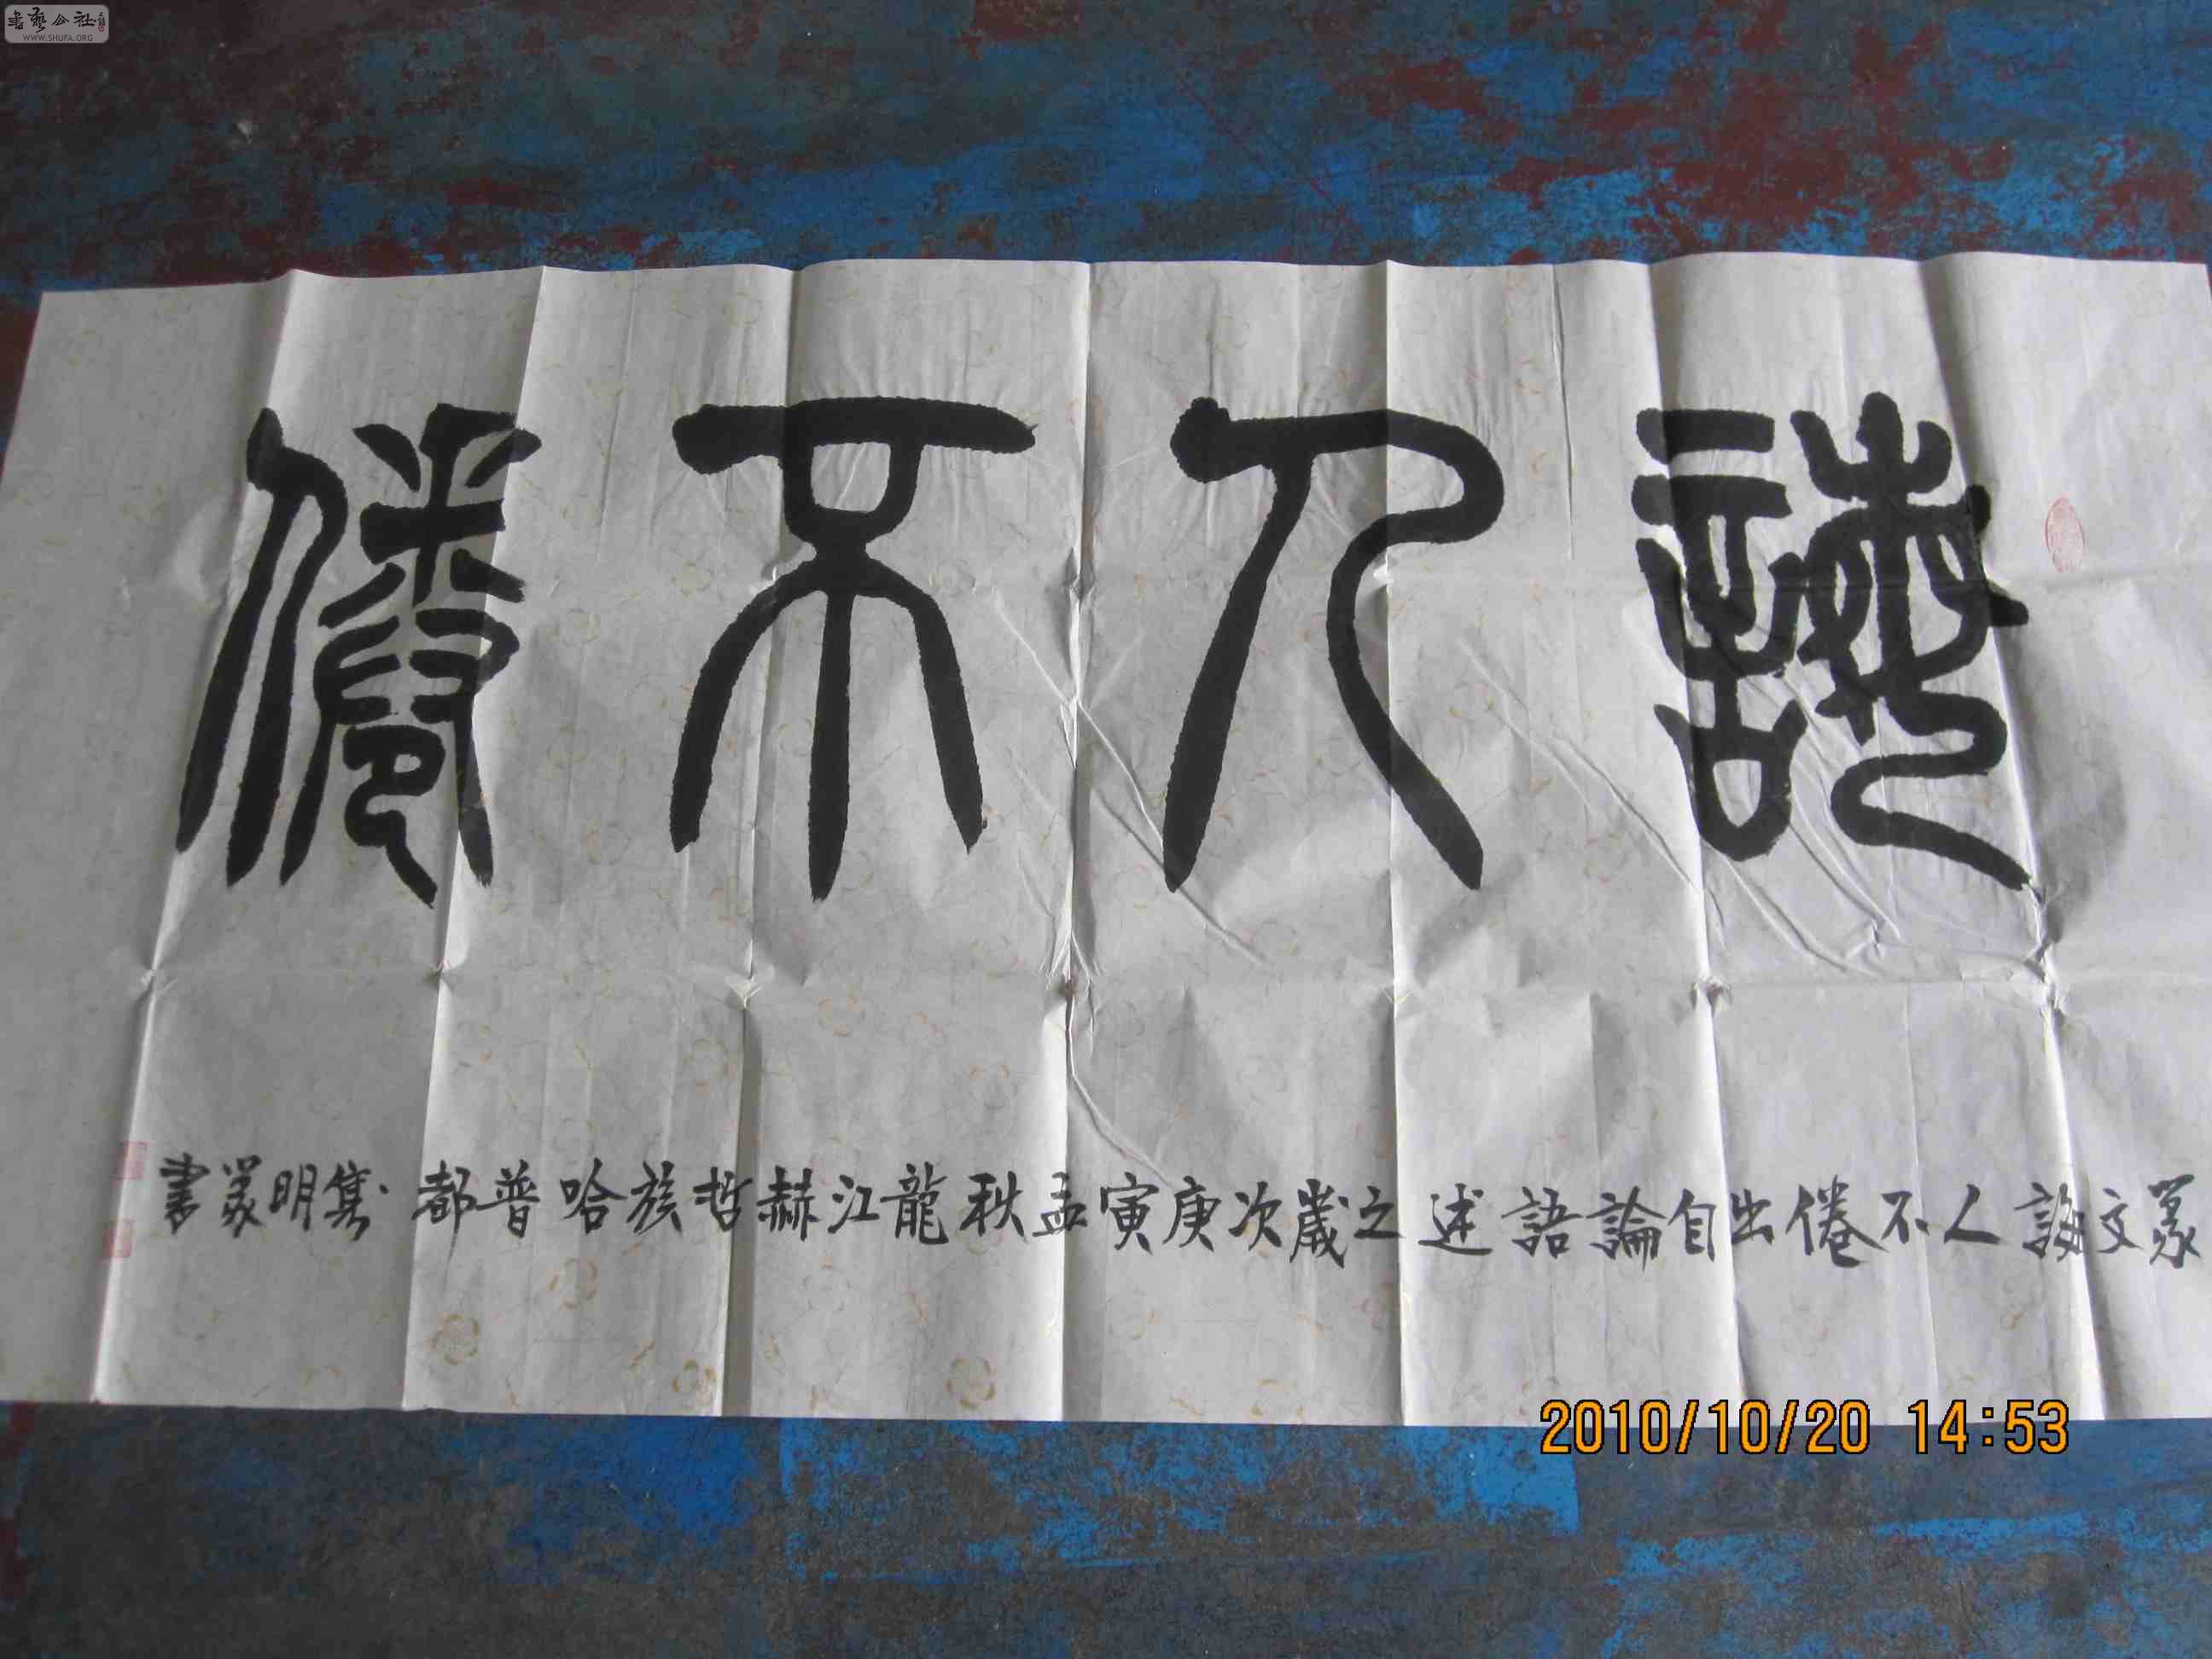 書藝公社
WWW.SHUFA.ORG
誨人不倦
篆文誨人不倦出自論語述之歲次庚寅孟秋龍江赫哲族哈普都隽明篆書
2010/10/20 14:53